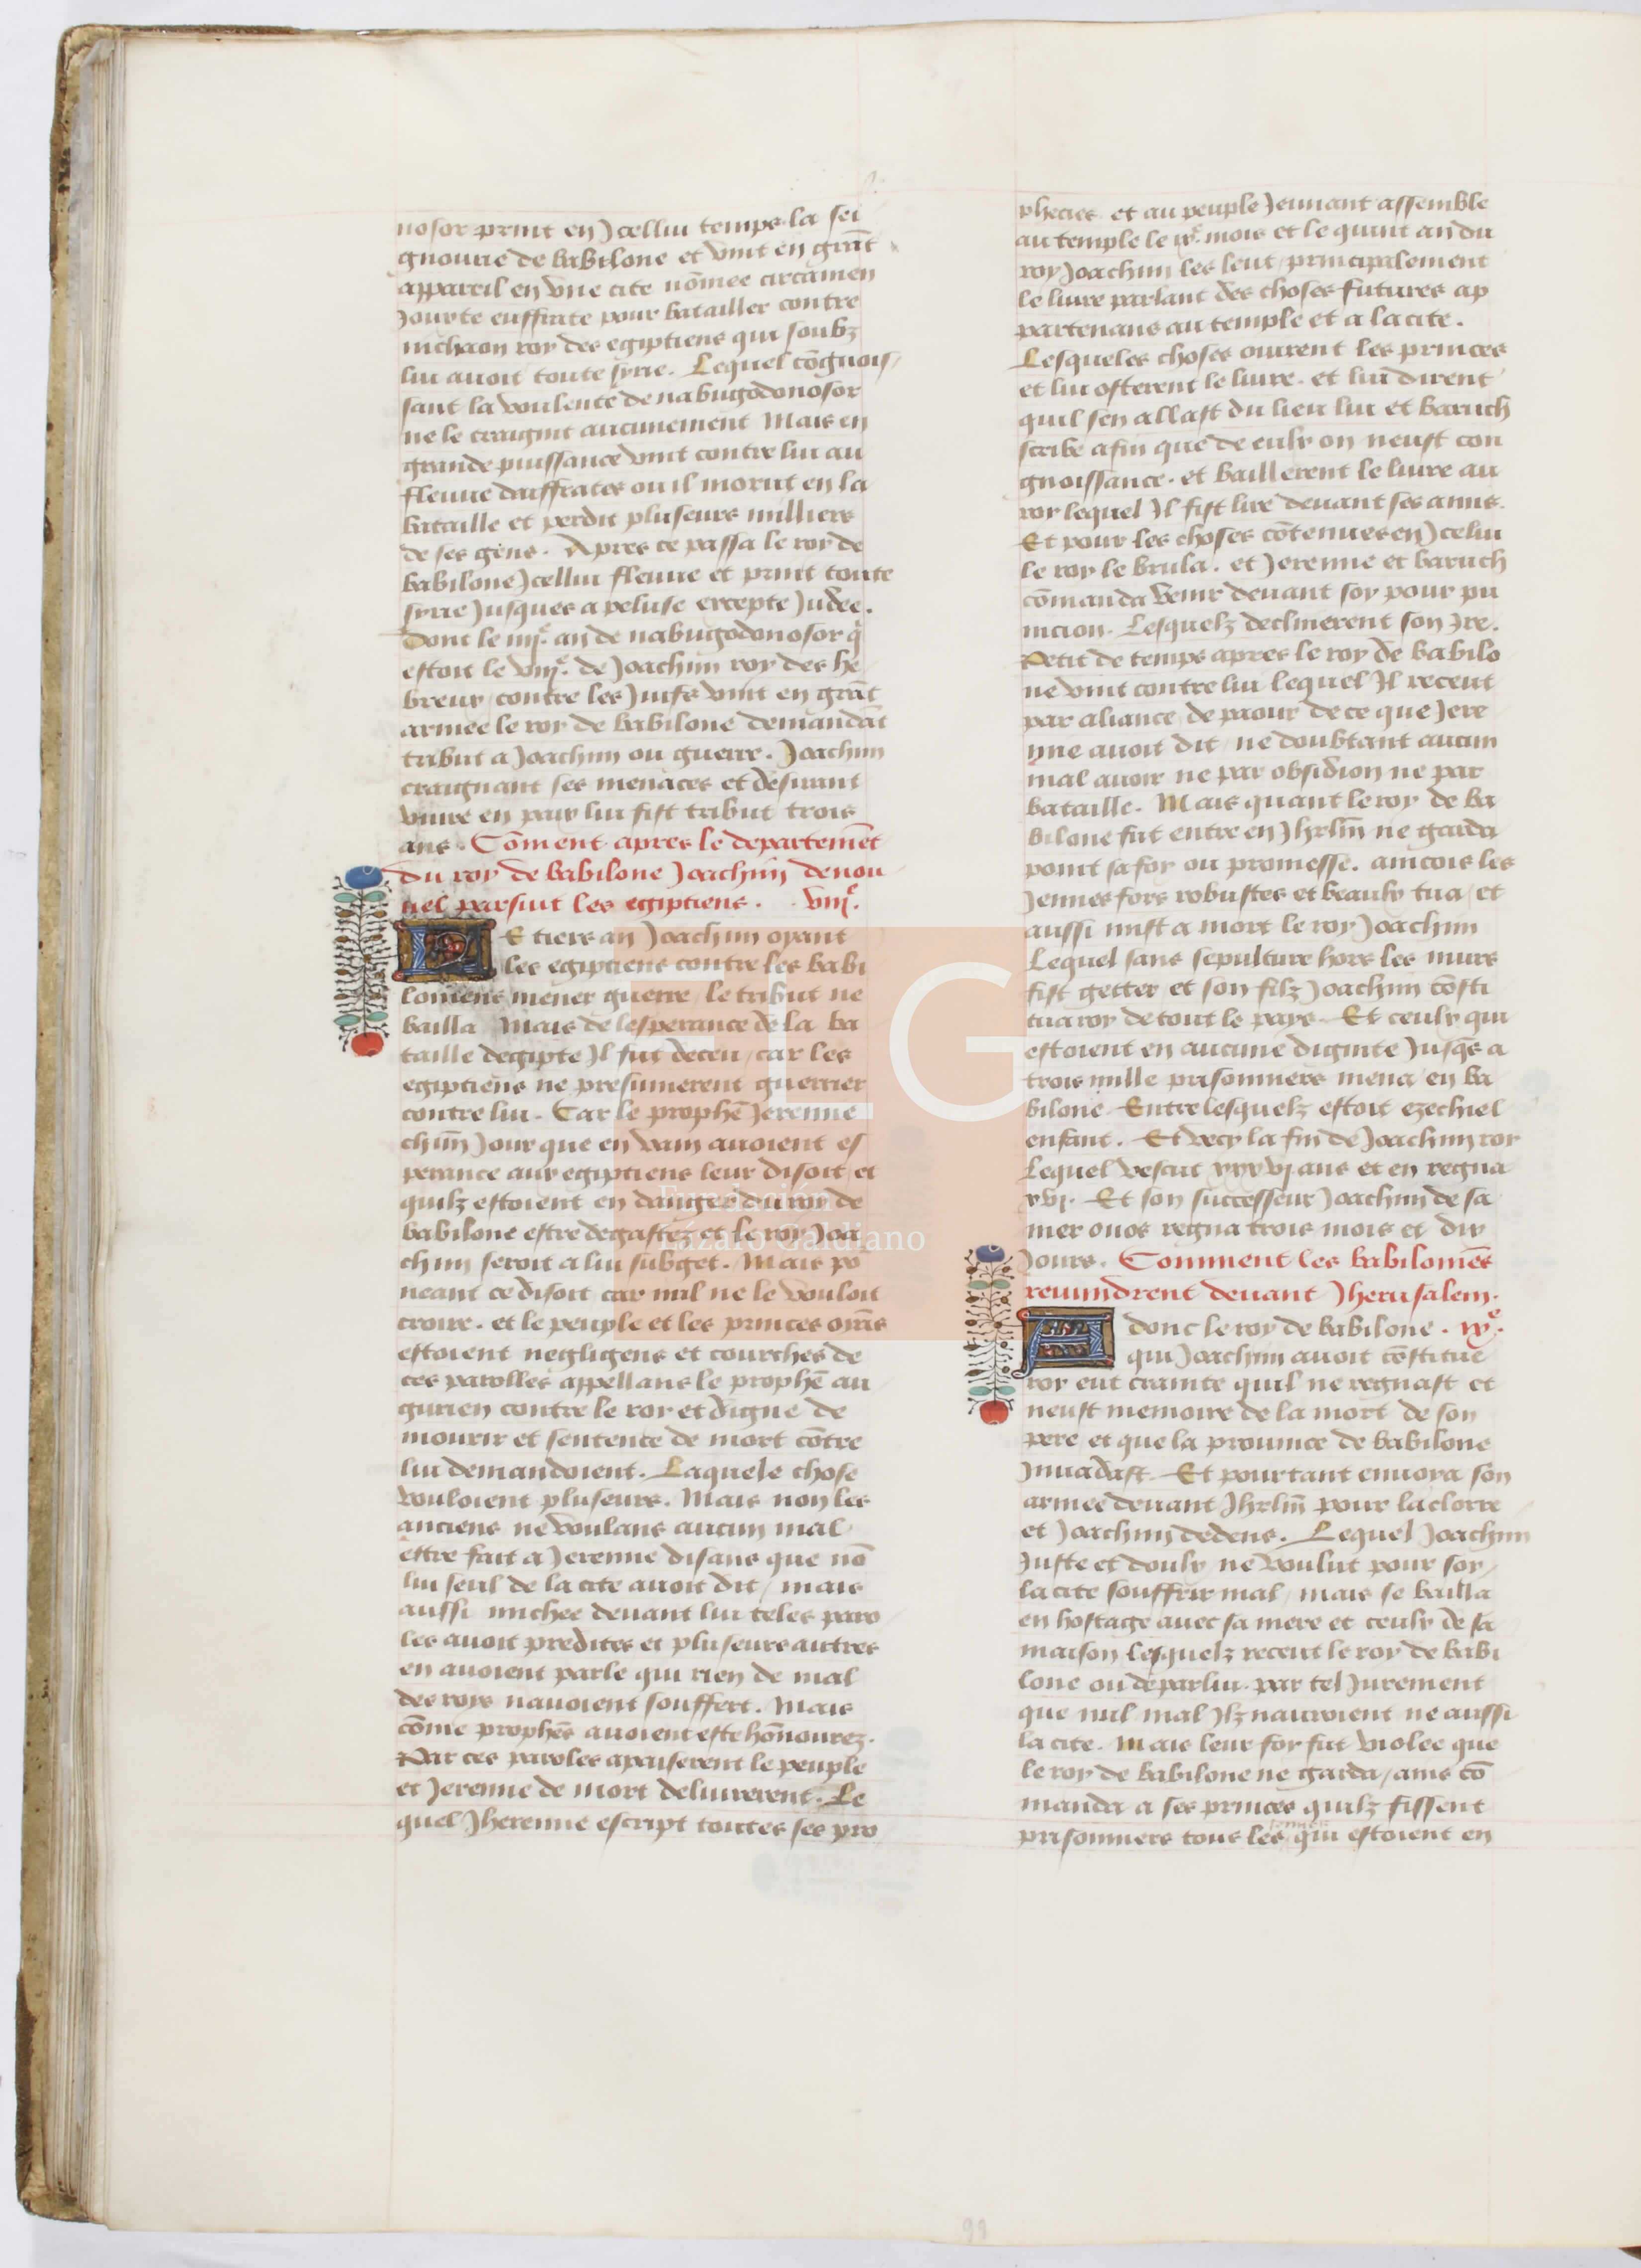 nosor print en Jcellui temps la sei
gnourie de babilone et vint en grāt
appareil en vne cite nōmee circamen
Jouxte euffrate pour batailler contre
nichaon roy des egiptiens qui soubz
lui auoit toute syrie. Lequel cōgnois
sant la voulente de nabugodonosor
ne le craignit aucunement Mais en
grande puissance vint contre lui au
fleuue deuffrates ou il morut en la
bataille et perdit pluseurs milliers
de ses gēns. Apres ce passa le roy de
babilone Jcellui fleuue et print toute
syrie Jusques a peluse excepte Judee.
Dont le iiije. an de nabugodonosor q̄
estoit le viije. de Joachim roy des he
breux contre les Juifs vint en grāt
armee le roy de babilone demandāt
tribut a Joachim ou guerre. Joachim
craignant ses menaces et desirant
viure en paix lui fist tribut trois
ans. Cōment apres le departemēt
du roy de babilone Joachim de nou
uel parsuit les egiptiens. viije.
LE tiers an Joachim oyant
les egiptiens contre les babi
loniens mener guerre le tribut ne
bailla Mais de lesperance de la ba
taille degipte Jl fut deceu, car les
egiptiens ne presumerent guerrier
contre lui. Car le prophē Jeremie
chūn Jour que en vain auoient es
perance aux egiptiens leur disoit et
quilz estoient en dangier du roy de
babilone estre degastez et le roy Joa
chim seroit a lui subget. Mais po
neant ce disoit car nul ne le vouloit
croire. et le peuple et les princes oyās
estoient negligens et courches de
ces parolles appellans le prophē au
gurien contre le roy et digne de
mourir et sentence de mort cōtre
lui demandoient. Laquele chose
vouloient pluseurs. Mais non les
anciens ne voulans aucun mal
estre fait a Jeremie disans que nō
lui seul de la cite auoit dit, mais
aussi michee deuant lui teles paro
les auoit predites et pluseurs autres
en auoient parle qui rien de mal
des roys nauoient souffert. Mais
cōme prophēs auoient este hōnourez.
Par ces paroles apaiserent le peuple
et Jeremie de mort deliurerent. Le
quel Jheremie escript toutes ses pro
phecies et au peuple Jeunant assemble
au temple le ixe. mois et le quint an du
roy Joachim les leut principalement
le liure parlant des choses futures ap
partenans au temple et a la cite.
Lesqueles choses ouirent les princes
et lui osterent le liure. et lui dirent
quil sen allast du lieu lui et Baruch
scribe afin que de eulx on neust con
gnoissance. et baillerent le liure au
roy lequel Jl fist lire deuant ses amis.
Et pour les choses cōtenues en Jcelui
le roy le brula. et Jeremie et baruch
cōmanda venir deuant soy pour pu
nicion. Lesquelz declinerent son Jre.
Petit de temps apres le roy de babilo
ne vint contre lui lequel Jl receut
par aliance de paour de ce que Jere
mie auoit dit ne doubtant aucun
mal auoir ne par obsidion ne par
bataille. Mais quant le roy de ba
bilone fut entre en Jhrlm̄ ne garda
point sa foy ou promesse. aincois les
Jennes fors robustes et beaulx tua et
aussi mist a mort le roy Joachim
Lequel sans sepulture hors les murs
fist getter et son filz Joachim cōsti
tua roy de tout le pays. Et ceulx qui
estoient en aucune dignite Jusq̄s a
trois mille prisonniers mena en ba
bilone. Entre lesquelz estoit ezechiel
enfant. Et vecy la fin de Joachim roy
Lequel vescut xxxvj ans et en regna
xvj. Et son successeur Joachim de sa
mer onos regna trois mois et dix
Jours. Comment les babiloniēs
reuindrent deuant Jherusalem.
Adonc le roy de babilone. ixe.
qui Joachim auoit cōstitue
roy eut crainte quil ne regnast et
neust memoire de la mort de son
pere et que la prouince de babilone
Jnuadast. Et pourtant enuoya son
armee deuant Jhrlm̄ pour laclorre
et Joachim dedens. Lequel Joachim
Juste et doulx ne voulut pour soy
la cite souffrir mal, mais se bailla
en hostage auec sa mere et ceulx de sa
maison lesquelz receut le roy de babi
lone ou de par lui par tel Jurement
que nul mal Jlz nauroient ne aussi
la cite. Mais leur foy fut violee que
le roy de babilone ne garda, ains cō
manda a ses princes quilz fissent
prisonniers tous les qui estoient en
LG
Fundación
Lázaro Galdiano
99